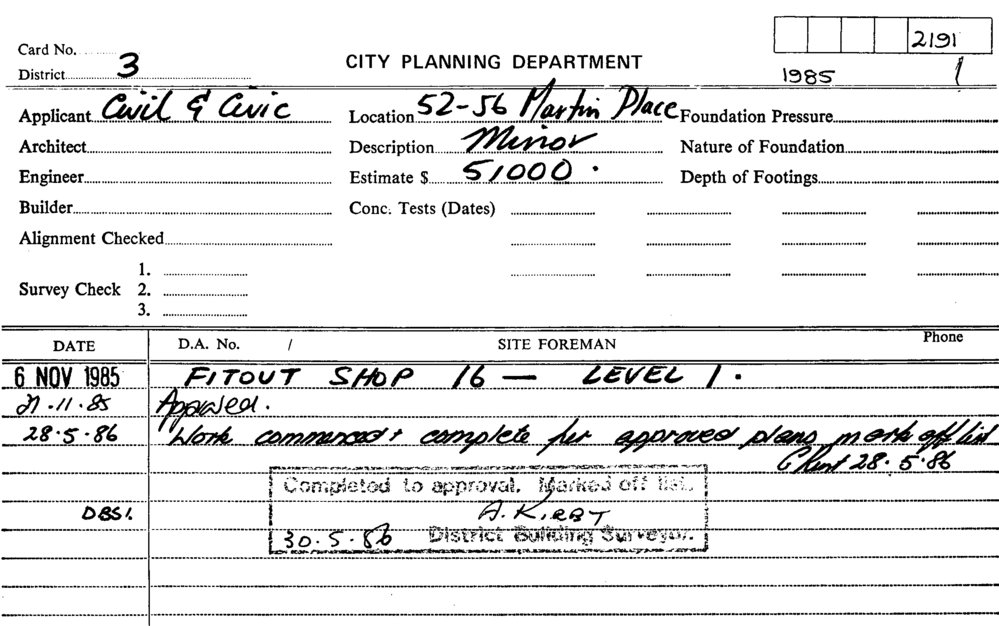 2191
Card No.
CITY PLANNING DEPARTMENT
District 3
1985 1
Applicant Civil & Civic Location 52-56 Martin Place Foundation Pressure
Architect Description Minor Nature of Foundation
Engineer Estimate $ 51000. Depth of Footings
Builder Conc. Tests (Dates)
Alignment Checked
1.
Survey Check 2.
3.
DATE D.A. No. / SITE FOREMAN Phone
6 NOV 1985 FITOUT SHOP 16 — LEVEL 1.
21.11.85 Approved.
28.5.86 Work commenced & complete per approved plans mark off list
28.5.86
Completed to approval. Marked off list.
DBS1. A. KIRBY
30.5.86 District Building Surveyor.